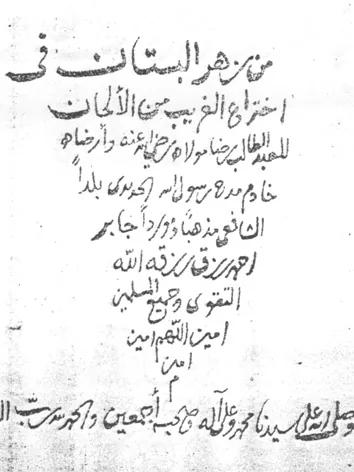 من زهر البستان في
اختراع الغريب من الألحان
للعبد الطالب رضا مولاه رضي الله عنه وأرضاه
خادم مدح رسول الله بلداً
الشافعي مذهباً جابر
احمد رزق رزقه الله
التقوى وجميع المسلمين
امين اللهم امين
امين
م
وصلى الله على سيدنا محمد وعلى آله وصحبه أجمعين والحمد لله ربّ